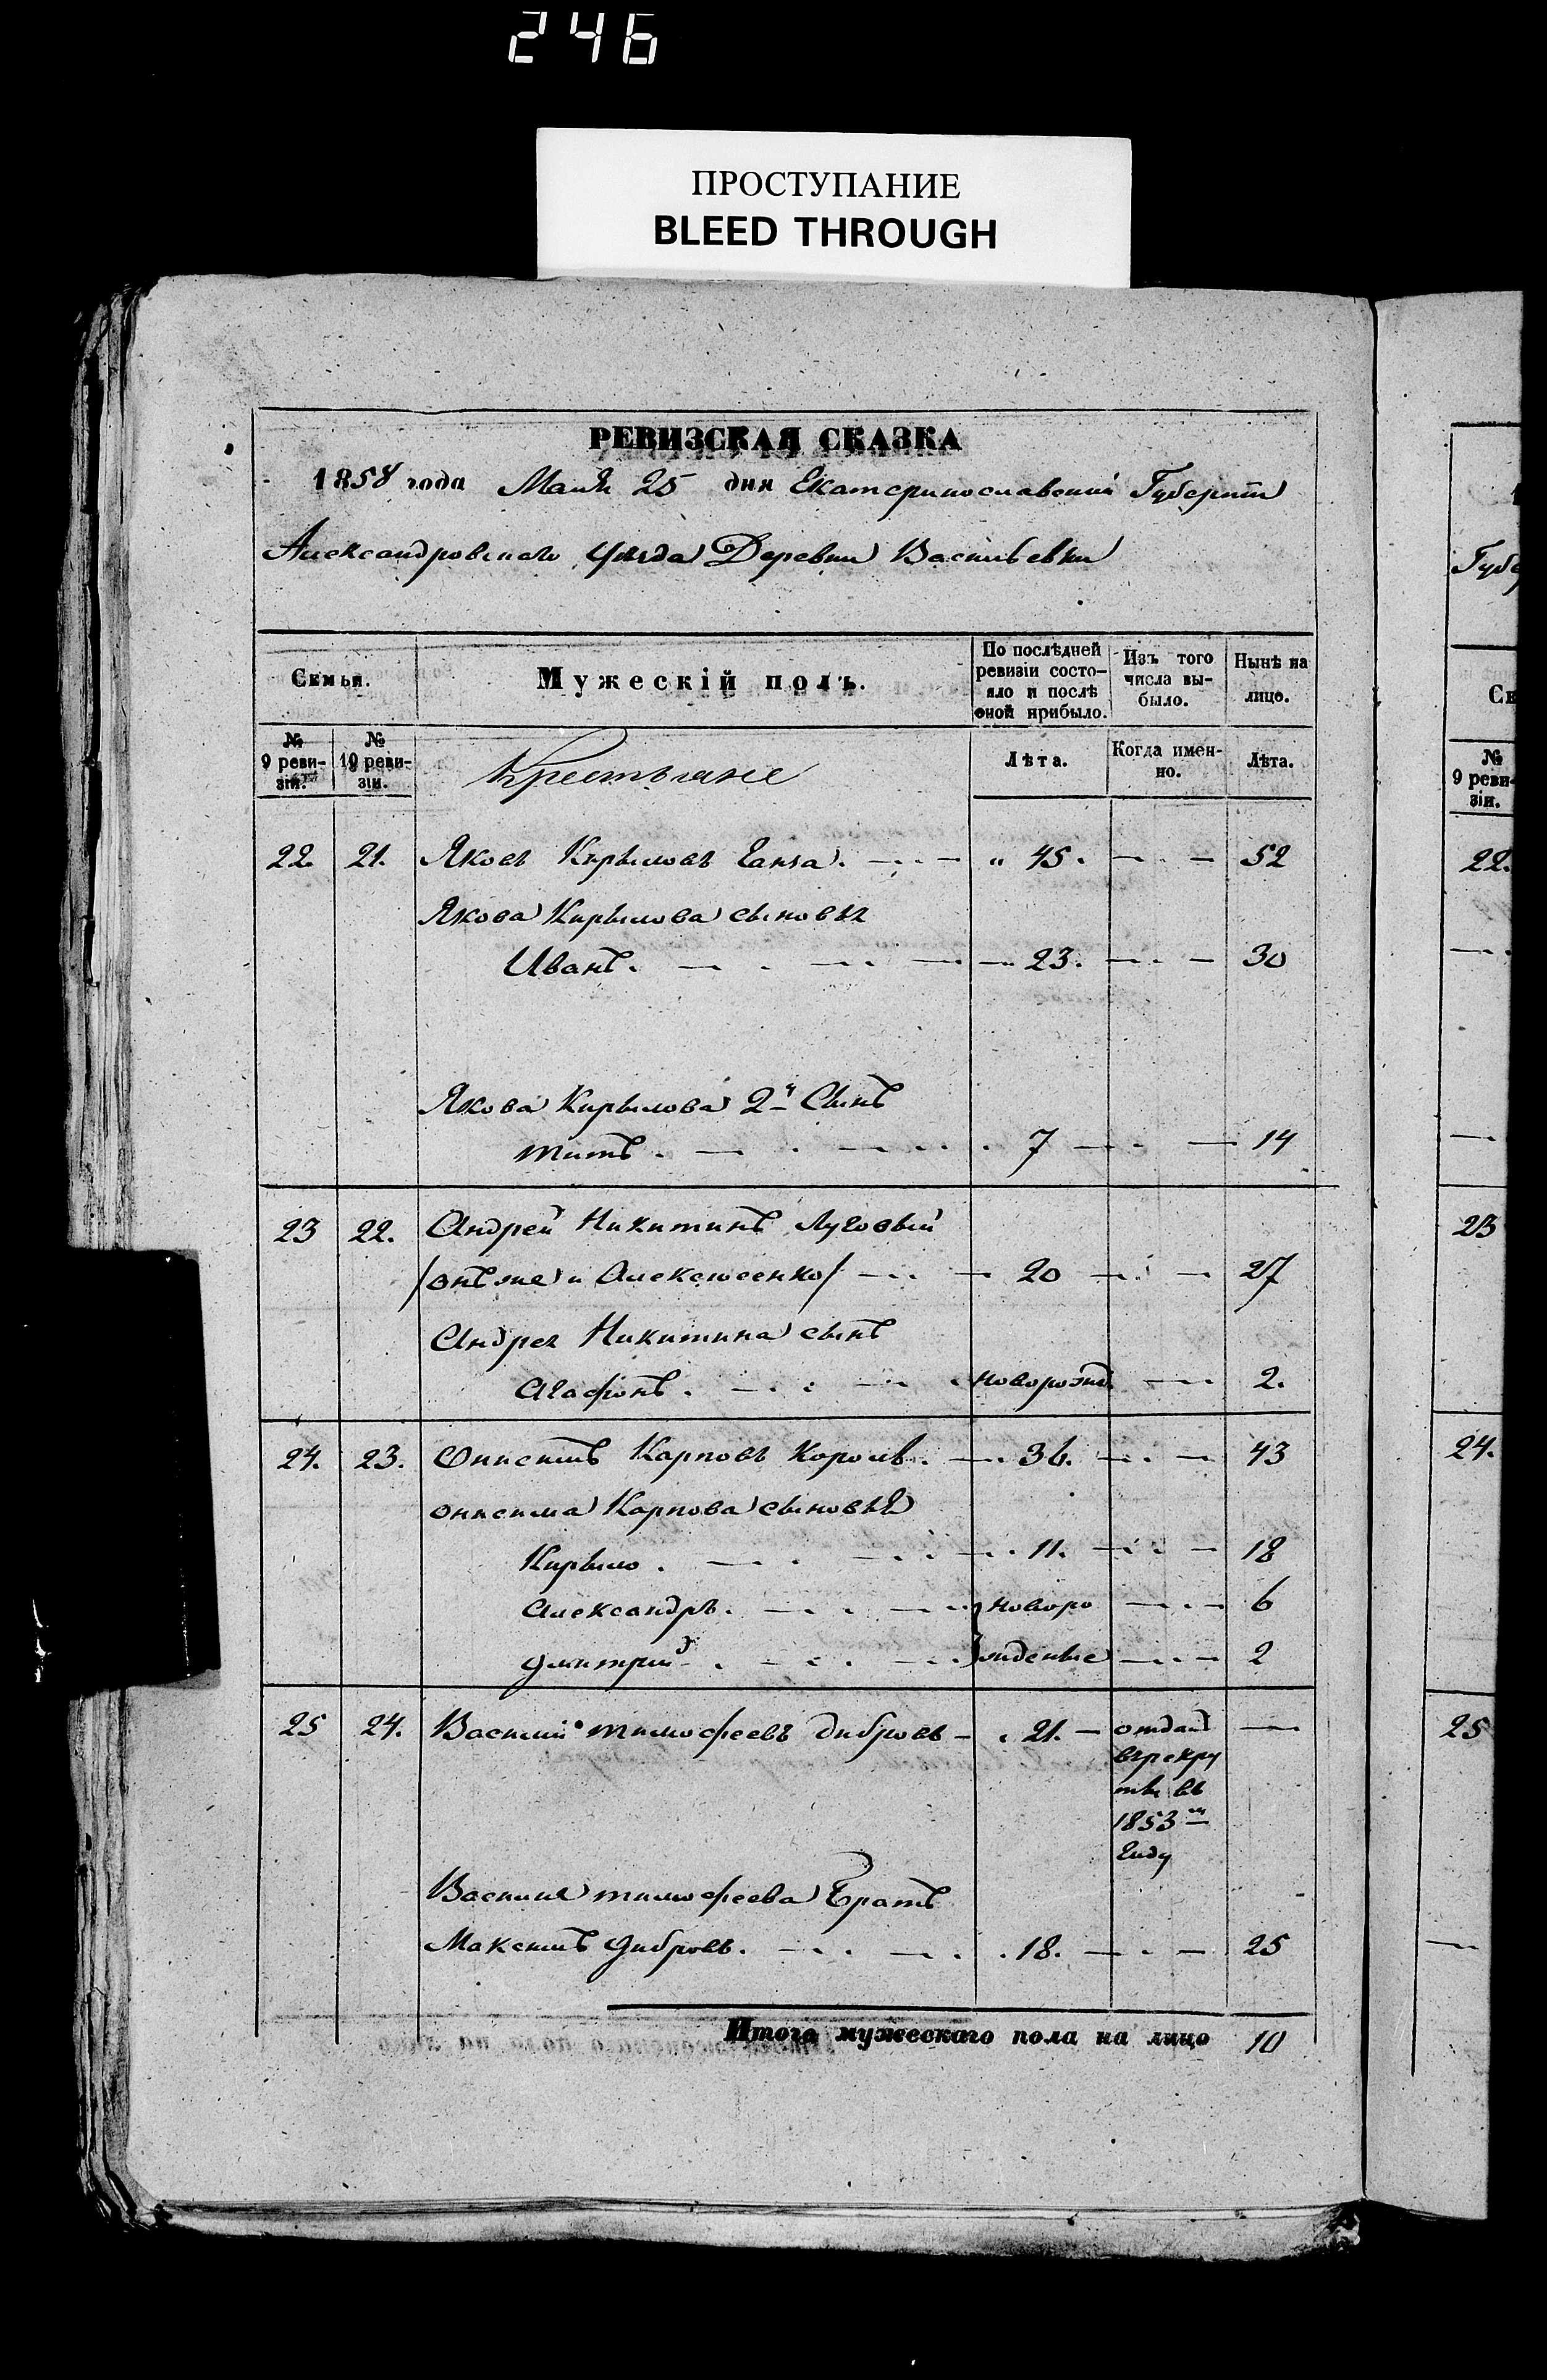 246
ПРОСТУПАНИЕ
BLEED THROUGH
РЕВИЗСКАЯ СКАЗКА
1858 года Маія 25 дня Екатеринославской Губерніи
Александровскаго Уѣзда Деревни Васильевки
Семьи.
Мужескій полъ.
По послѣдней ревизіи состояло и послѣ оной прибыло.
Изъ того числа выбыло.
Нынѣ на лицо.
№ 9 ревизіи.
№ 10 ревизіи.
Крестьяне
Лѣта.
Когда именно.
Лѣта.
22. 21. Яковъ Кирыловъ Ганжа. " 45. 52
Якова Кирылова сыновья
Иванъ. 23. 30
Якова Кирылова 2й Сынъ
Титъ. 7 14
23 22. Андрей Никитинъ Луговый
/онъ же и Алексѣенко/ 20 27
Андрея Никитина сынъ
Агафонъ. новорожд. 2.
24. 23. Онисимъ Карповъ Король. 36. 43
Онисима Карпова сыновья
Кирыло. 11. 18
Александръ. новоро 6
Дмитрій. жденные 2
25 24. Василий Тимофеевъ Дибровъ 21. отданъ
въ рекру
ты въ
1853м
году
Василия Тимофеева Братъ
Максимъ Дибровъ. 18. 25
Итого мужескаго пола на лицо 10
Губе
Се
№ 9 ревизіи.
22.
23
24.
25